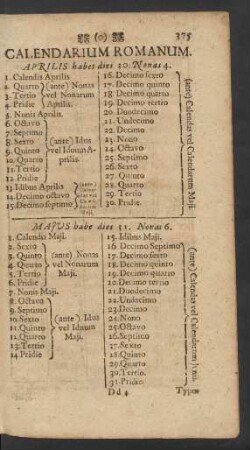 (o) 375
CALENDARIUM ROMANUM.
APRILIS habet dies 30. Nonas 4.
1. Calendis Aprilis.
2. Quarto
3. Tertio
4. Pridie
(ante) Nonas
vel Nonarum
Aprilis.
5. Nonis Aprilis.
6. Octavo
7. Septimo
8. Sexto
9. Quinto
10. Quarto
11. Tertio
12. Pridie
(ante) Idus
vel Iduum A-
prilis.
13. Idibus Aprilis
14. Decimo octavo
15. Decimo septimo
16. Decimo sexto
17. Decimo quinto
18. Decimo quarto
19. Decimo tertio
20. Duodecimo
21. Undecimo
22. Decimo
23. Nono
24. Octavo
25. Septimo
26. Sexto
27. Quinto
28. Quarto
29. Tertio
30. Pridie.
(ante) Calendas vel Calendarum Maji.
MAJUS habe dies 31. Nonas 6.
1. Calendis Maji.
2. Sexto
3. Quinto
4. Quarto
5. Tertio
6. Pridie
(ante) Nonas
vel Nonarum
Maji.
7. Nonis Maji.
8. Octavo
9. Septimo
10. Sexto
11. Quinto
12. Quarto
13. Tertio
14. Pridie
(ante) Idus
vel Iduum
Maji.
15. Idibus Maji.
16. Decimo Septimo
17. Decimo sexto
18. Decimo quinto
19. Decimo quarto
20. Decimo tertio
21. Duodecimo
22. Undecimo
23. Decimo
24. Nono
25. Octavo
26. Septimo
27. Sexto
28. Quinto
29. Quarto
30. Tertio
31. Pridie.
(ante) Calendas vel Calendarum Junii.
Dd 4 Typus